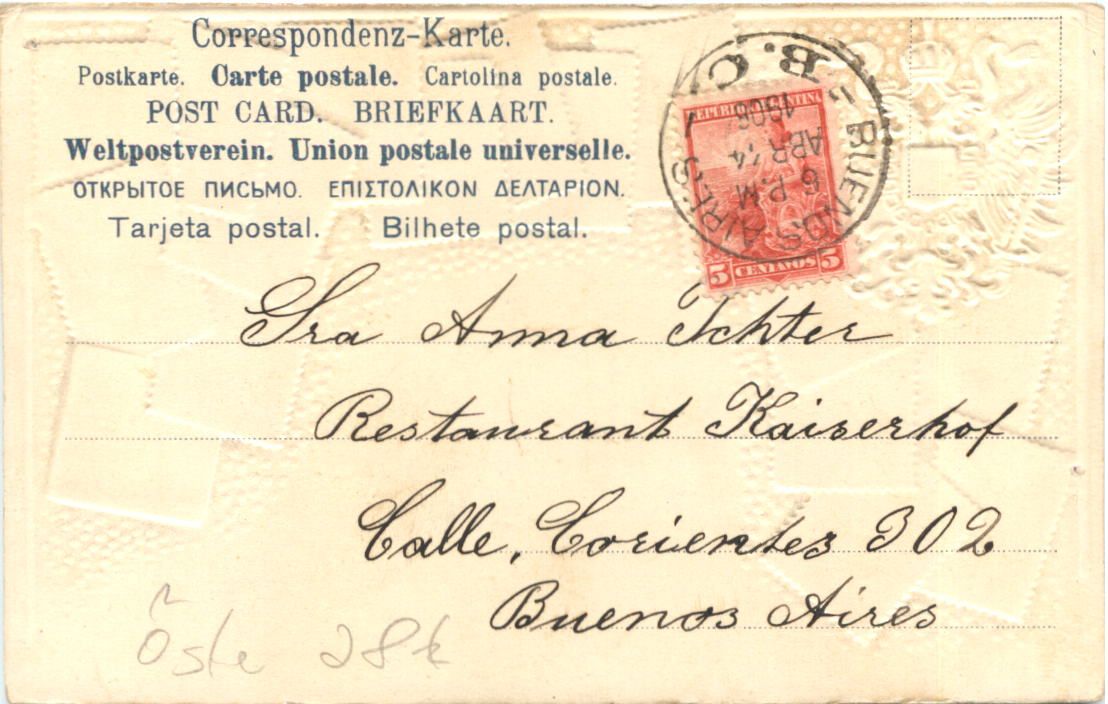 Correspondenz-Karte.
Postkarte. Carte postale. Cartolina postale.
POST CARD. BRIEFKAART.
Weltpostverein. Union postale universelle.
ОТКРЫТОЕ ПИСЬМО. ΕΠΙΣΤΟΛΙΚΟΝ ΔΕΛΤΑΡΙΟΝ.
Tarjeta postal. Bilhete postal.
REPUBLICA ARGENTINA
5 CENTAVOS 5
BUENOS AIRES
B. C.
6 P.M
ABR 14
1906
Sra Anna Ichter
Restaurant Kaiserhof
Calle, Corientes 302
Buenos Aires
Öste 28k